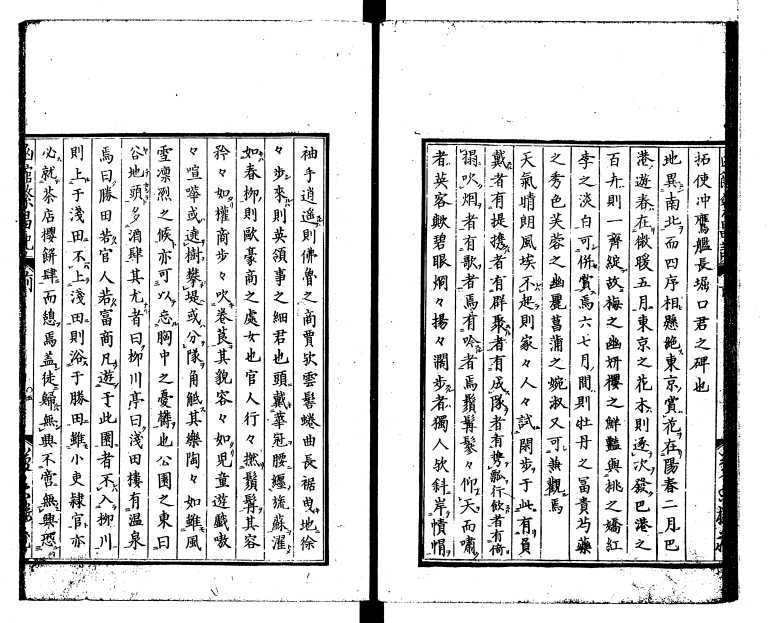 拓使冲鷹艦長堀口君之碑也
地異南北而四序相懸絶東京賞花在陽春二月巴
港遊春在微暖五月東京之花木則逐次發巴港之
百卉則一齊綻故梅之幽妍櫻之鮮豔與桃之嬌紅
李之淡白可併賞焉六七月間則牡丹之富貴芍藥
之秀色芙蓉之幽麗菖蒲之婉淑又可兼觀焉
天氣晴朗風埃不起則家々人々試閑步于此有負
戴者有提携者有群聚者有成隊者有携瓢行飲者有倚
榻吹烟者有歌者焉有吟者焉鬚髯鬖々仰天而嘯
者英客歟碧眼烱々揚々濶步者獨人欤斜岸幘帽
袖手逍遥則佛魯之商賈欤雲髻蜷曲長裾曳地徐
々步來則英領事之細君也頭戴華冠腰纏流蘇濯々
如春柳則歐豪商之處女也官人行々撚鬚髯其容
矜々如權商步々吹卷莨其貌容々如児童遊戲嗷
々喧嘩或遶樹攀堤或分隊角觝其樂陶々如雖風
雪凛烈之候亦可以忘胸中之憂欝也公園之東曰
谷地頭多酒肆其尤者曰柳川亭曰淺田樓有温泉
焉曰勝田若官人若富商凡遊于此園者不入柳川
則上于淺田不上淺田則浴于勝田雖小吏隷官亦
必就茶店櫻餅肆而憩焉蓋徒歸無興不啻無興恐
函館繁昌記 前